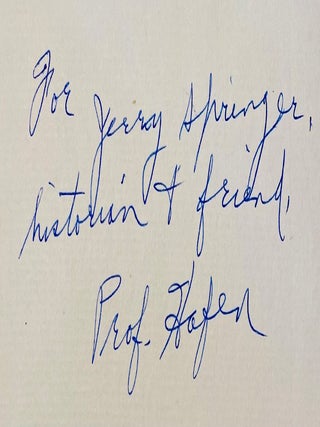 For
Jerry Springer,
historian & friend,
Prof. Hafen